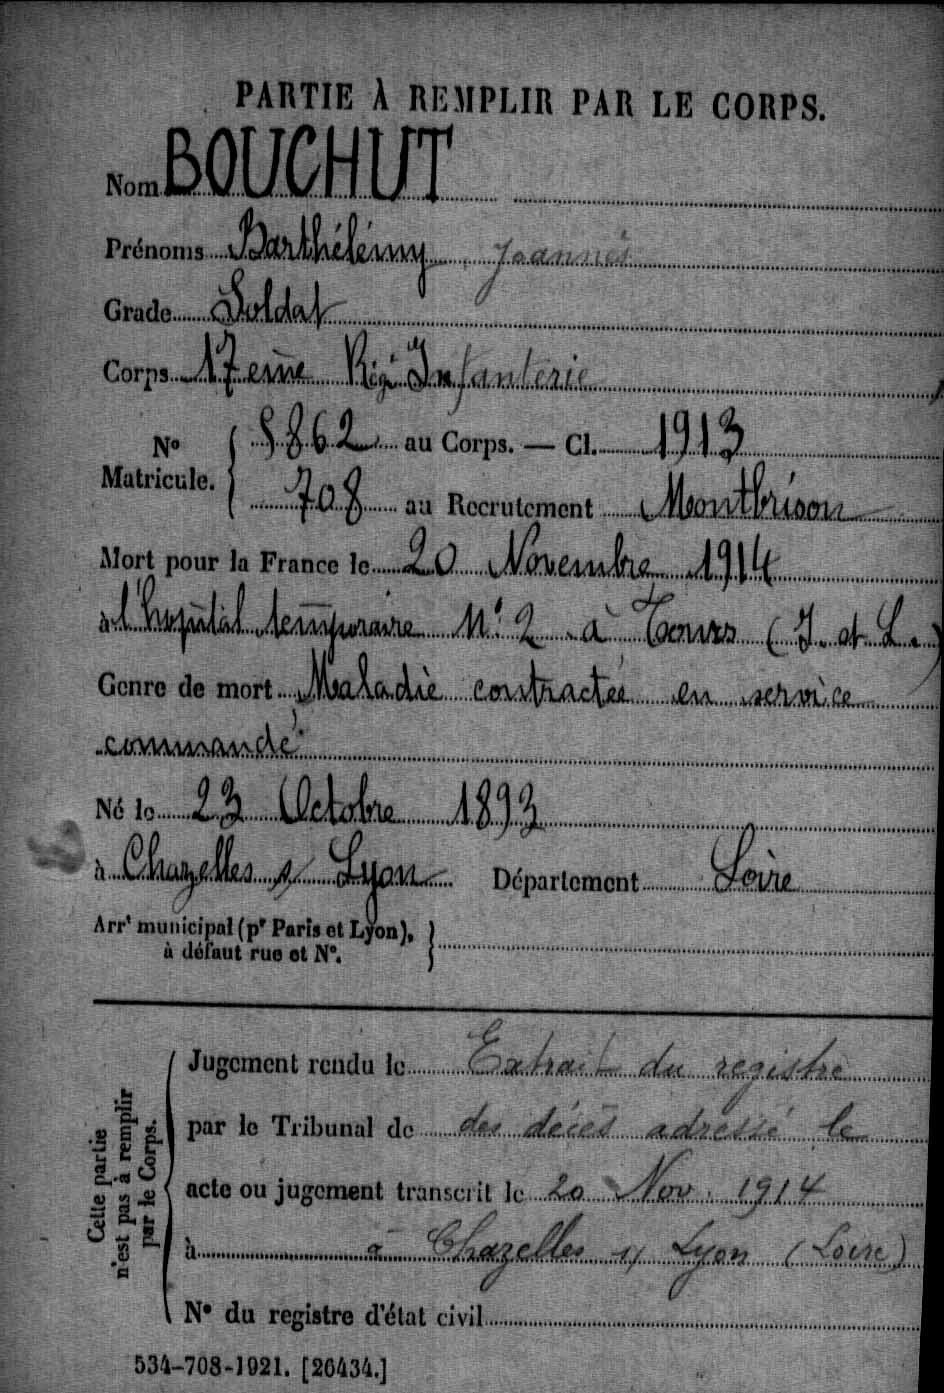 PARTIE À REMPLIR PAR LE CORPS.
Nom BOUCHUT
Prénoms Barthélémy Joannès
Grade Soldat
Corps 17eme Régt Infanterie
No Matricule. { 5862 au Corps. — Cl. 1913
708 au Recrutement Montbrison
Mort pour la France le 20 Novembre 1914
à l'hopital temporaire No 2 à Tours (I. et L.)
Genre de mort Maladie contractée en service
commandé.
Né le 23 Octobre 1893
à Chazelles s/ Lyon Département Loire
Arrt municipal (pr Paris et Lyon), }
à défaut rue et No.
Cette partie
n'est pas à remplir
par le Corps.
Jugement rendu le Extrait du registre
par le Tribunal de des décès adressé le
acte ou jugement transcrit le 20 Nov. 1914
à à Chazelles s/ Lyon (Loire)
No du registre d'état civil
534-708-1921. [26434.]